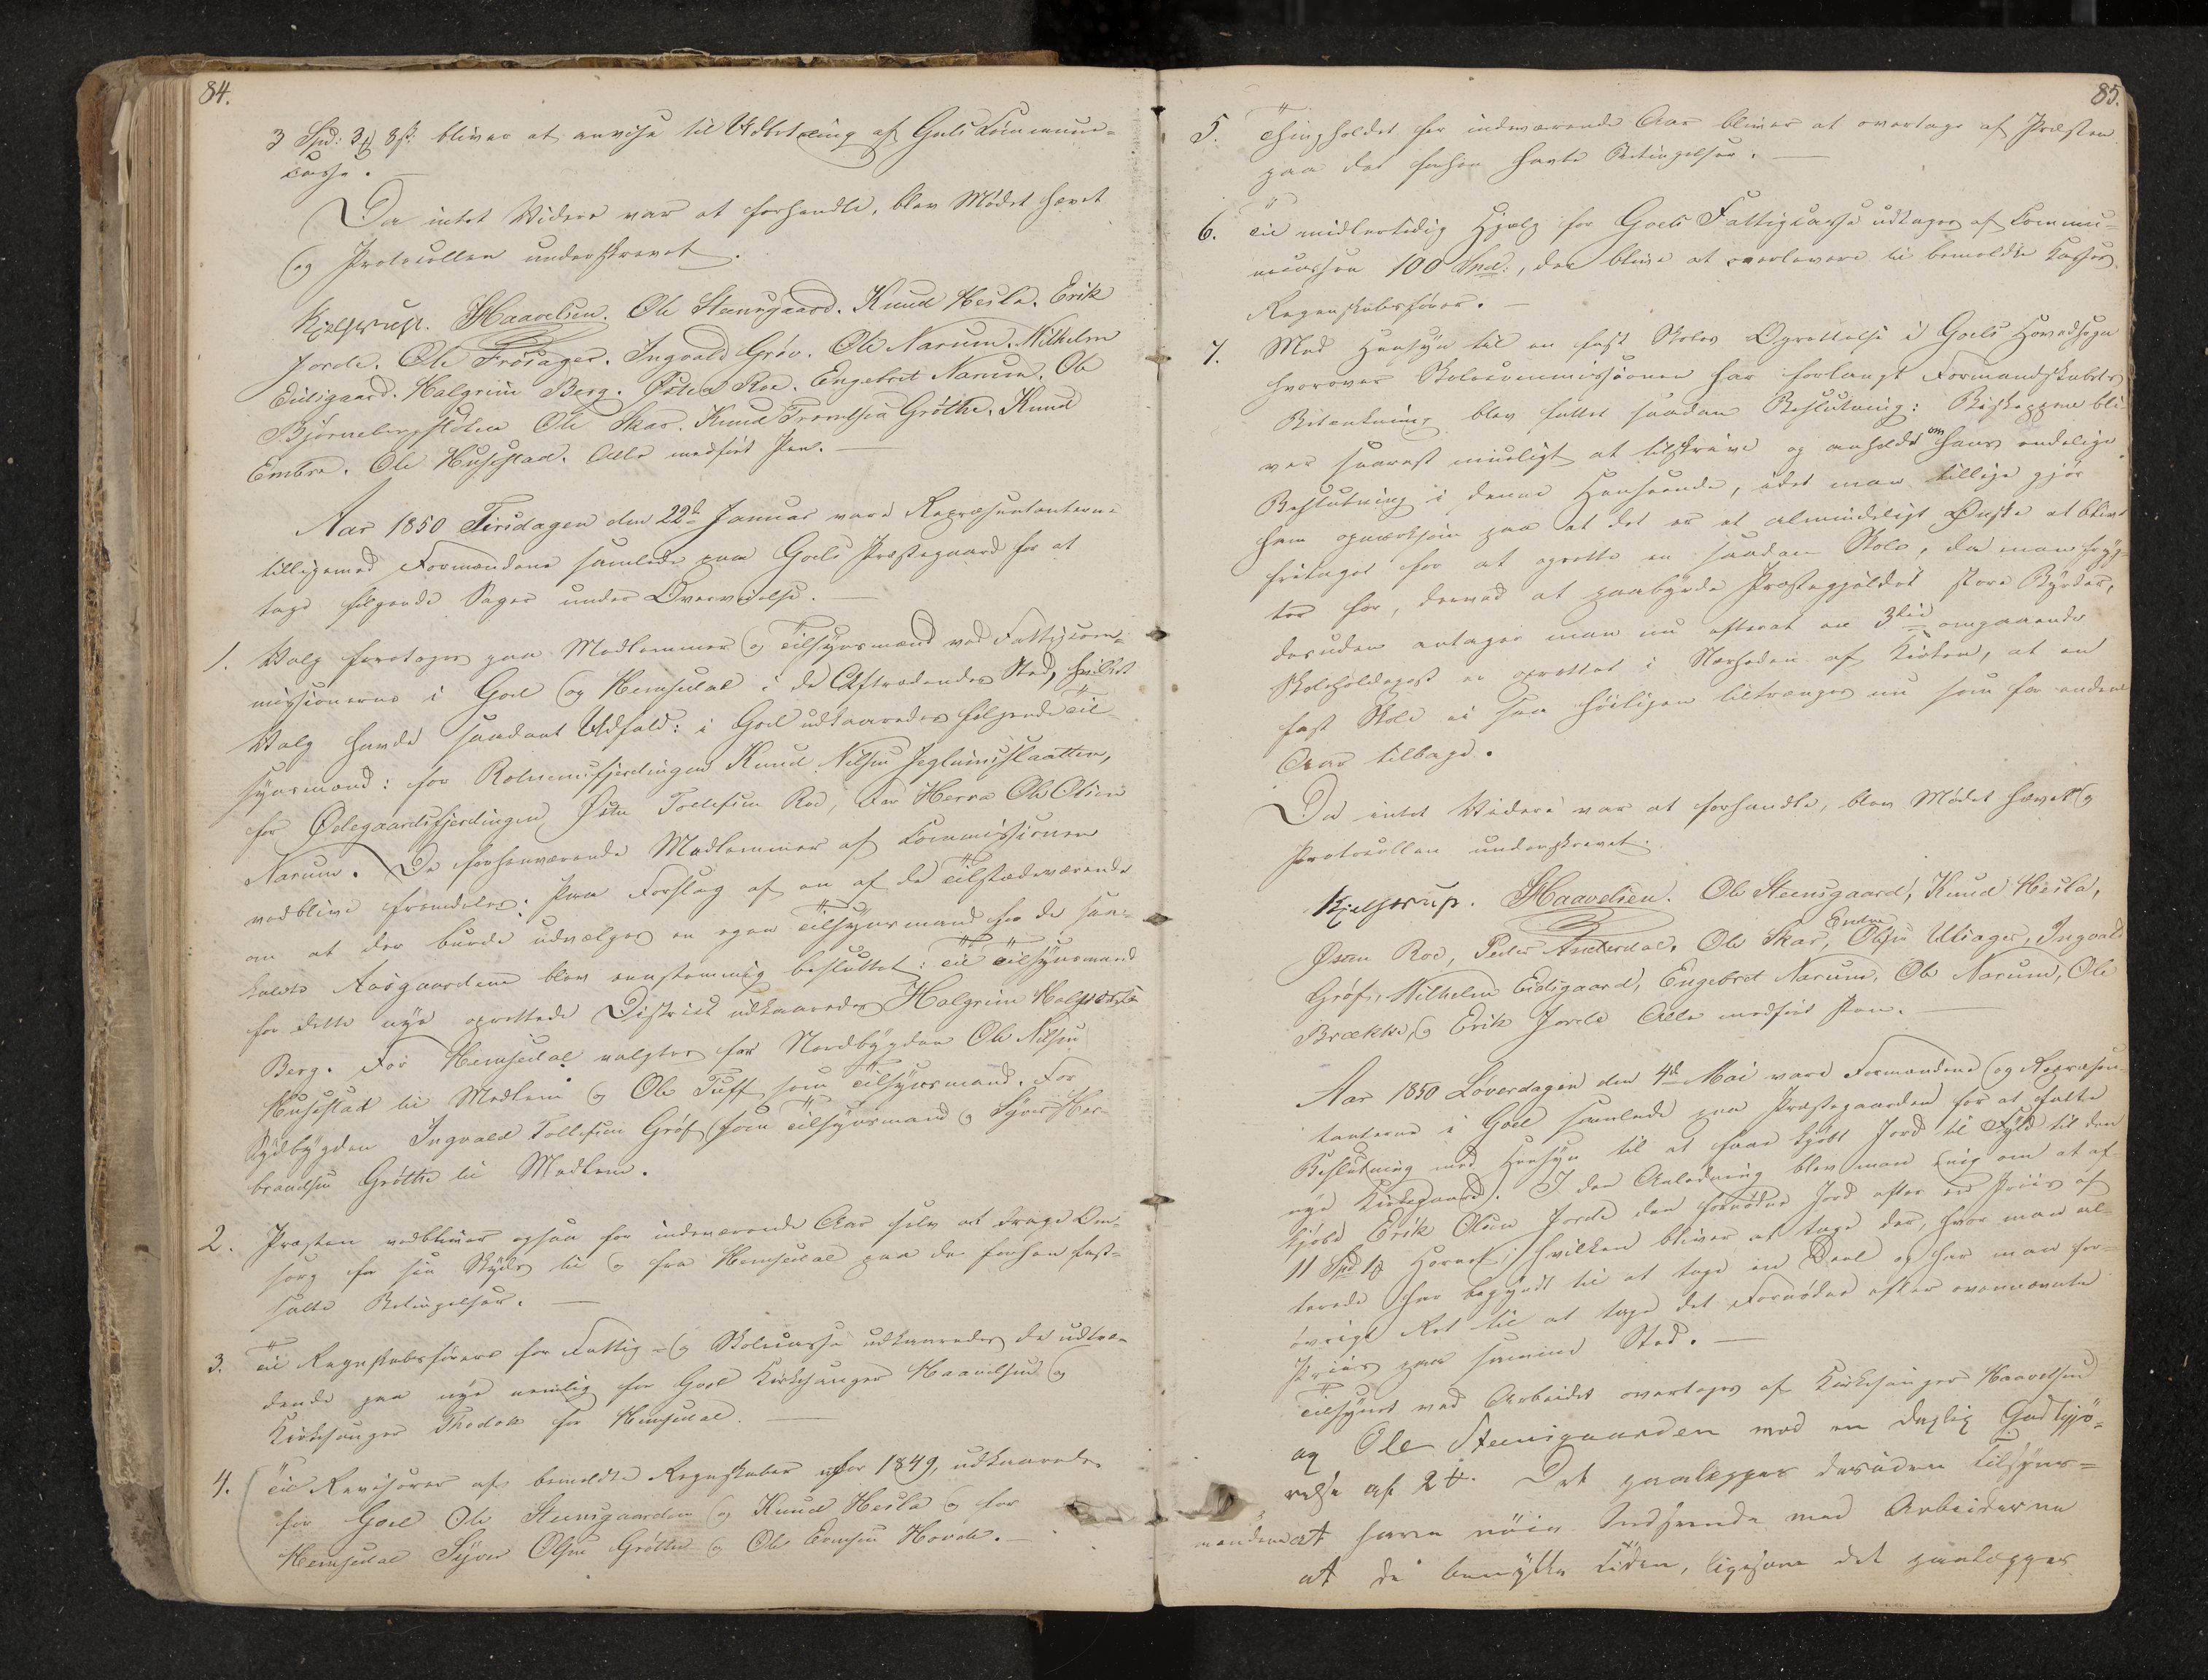 84.
3 Spd: 3 ß bliver at anvise til Udbetaling af Gols Commune-
casse.
Da intet Videre var at forhandle, blev Mødet hævet
og Protocollen underskrevet.
Kjelstrup. Haavelsen. Ole Steensgaard. Knud Hesla. Erik
Jorde. Ole Frøsager. Ingvald Grøv. Ole Narum. Wilhelm
Eidsgaard. Halgrim Berg. Østen Roe. Engebret Narum. Ole
Bjørnebergstølen Ole Skar. Knud Grøthe. Knud
Embre. Ole Husestad. Alle med ført Pen.
Aar 1850 Tirsdagen den 22de Januar vare Repræsentanterne
tilligemed Formændene samlede paa Goels Præstegaard for at
tage følgende Sager under Overveielse.
1. Valg foretages paa Medlemmer og Tilsynsmænd ved Fattigcom-
missionerne i Goel og Hemsedal i de Aftrædendes Sted, hvilket
Valg havde saadant Udfald: i Goel udkaaredes følgende Til-
synsmænd: for Rotneimsfjerdingen Knud Nilsen Jeglumslaatten,
for Ødegaardsfjerdingen Østen Tollefsen Roe, Herra Ole Olsen
Narum. De forhenværende Medlemmer af Commissionen
vedblive fremdeles. Paa Forslag af en af de Tilstædeværende
om at der burde udvælges en egen Tilsynsmand for de saa-
kaldte Aasgaardene blev eenstemmig besluttet: Til Tilsynsmand
for dette nye oprettede District udkaaredes Halgrim
Berg. For Hemsedal valgtes for Nordbygden Ole Nilsen
Husestad til Medlem og Ole Tuff som Tilsynsmand. For
Sydbygden Ingvald Tollefsen Grøf som Tilsynsmand og Syver Her-
brandsen Grøthe til Medlem.
2. Præsten vedbliver ogsaa for indeværende Aar selv at drage Om-
sorg for sin Skyds til og fra Hemsedal paa de forhen fast-
satte Betingelser.
3. Til Regnskabsførere for Fattig- og Skolecasse udkaaredes de udtræ-
dende paa nye nemlig for Goel Kirkesanger Haavelsen og
Kirkesanger Thodok for Hemsedal.
4. Til Revisorer af bemeldte Regnskaber for 1849, udkaaredes
for Goel Ole Steensgaarden og Knud Hesla og for
Hemsedal Syver Olsen Grøthe og Ole Hovde.
85.
5. Thingholdet for indeværende Aar bliver at overtage af Præsten
paa det forhen havte Betingelser.
6. Til midlertidig Hjælp for Goels Fattigcasse udtages af Commu-
necassen 100 Spd:, der blive at overlevere til bemeldte Casses
Regnskabsfører.
7. Med Hensyn til en fast Skoles Oprettelse i Goels Hovedsogn
hvorover Skolecommissionen har forlangt Formandskabets
Betænkning blev fattet saadan Beslutning: Biskoppen bli-
ver snarest mueligt at tilskrive og anholde om hans endelige
Beslutning i denne Henseende, idet man tillige gjør
ham opmærksom paa at det er et almindeligt Ønske at blive
fritaget for at oprette en saadan Skole, da man fryg-
ter for, derved at paabyrde Præstegjeldet store Byrder,
desuden antager man nu efterat en 3die omgaaende
Skoleholderpost er oprettet i Nærheden af Kirken, at en
fast Skole ei saa høiligen tiltrænges nu som for endeel
Aar tilbage.
Da intet Videre var at forhandle, blev Mødet hævet og
Protocollen underskrevet.
Kjelstrup. Haavelsen. Ole Steensgaard, Knud Hesla,
Østen Roe, Peder Anderdal. Ole Skar, Endre Olsen Ulsager, Ingvald
Grøf, Wilhelm Eidsgaard, Engebret Narum, Ole Narum, Ole
Brække, og Erik Jorde Alle med ført Pen.
Aar 1850 Løverdagen den 4de Mai vare Formændene og Repræsen-
tanterne i Goel samlede paa Præstegaarden for at fatte
Beslutning med Hensyn til at faae kjøbt Jord til Fyld til den
nye Kirkegaard. I den Anledning blev man enig om at af-
kjøbe Erik Olsen Jorde den fornødne Jord efter en Priis af
11 Spd hvilken bliver at tage der, hvor man al-
lerede har begyndt til at tage en Deel og har man for-
øvrigt Ret til at tage det Fornødne efter ovennævnte
Priis paa samme Sted.
Tilsynet ved Arbeidet overtages af Kirkesanger Haavelsen
og Ole Steensgaarden mod en daglig Godtgjø-
relse af 2 ₰. Det paalægges desuden Tilsyns-
mændene at have nøie Indseende med Arbeiderne
at de benytte Tiden, ligesom det paalægges